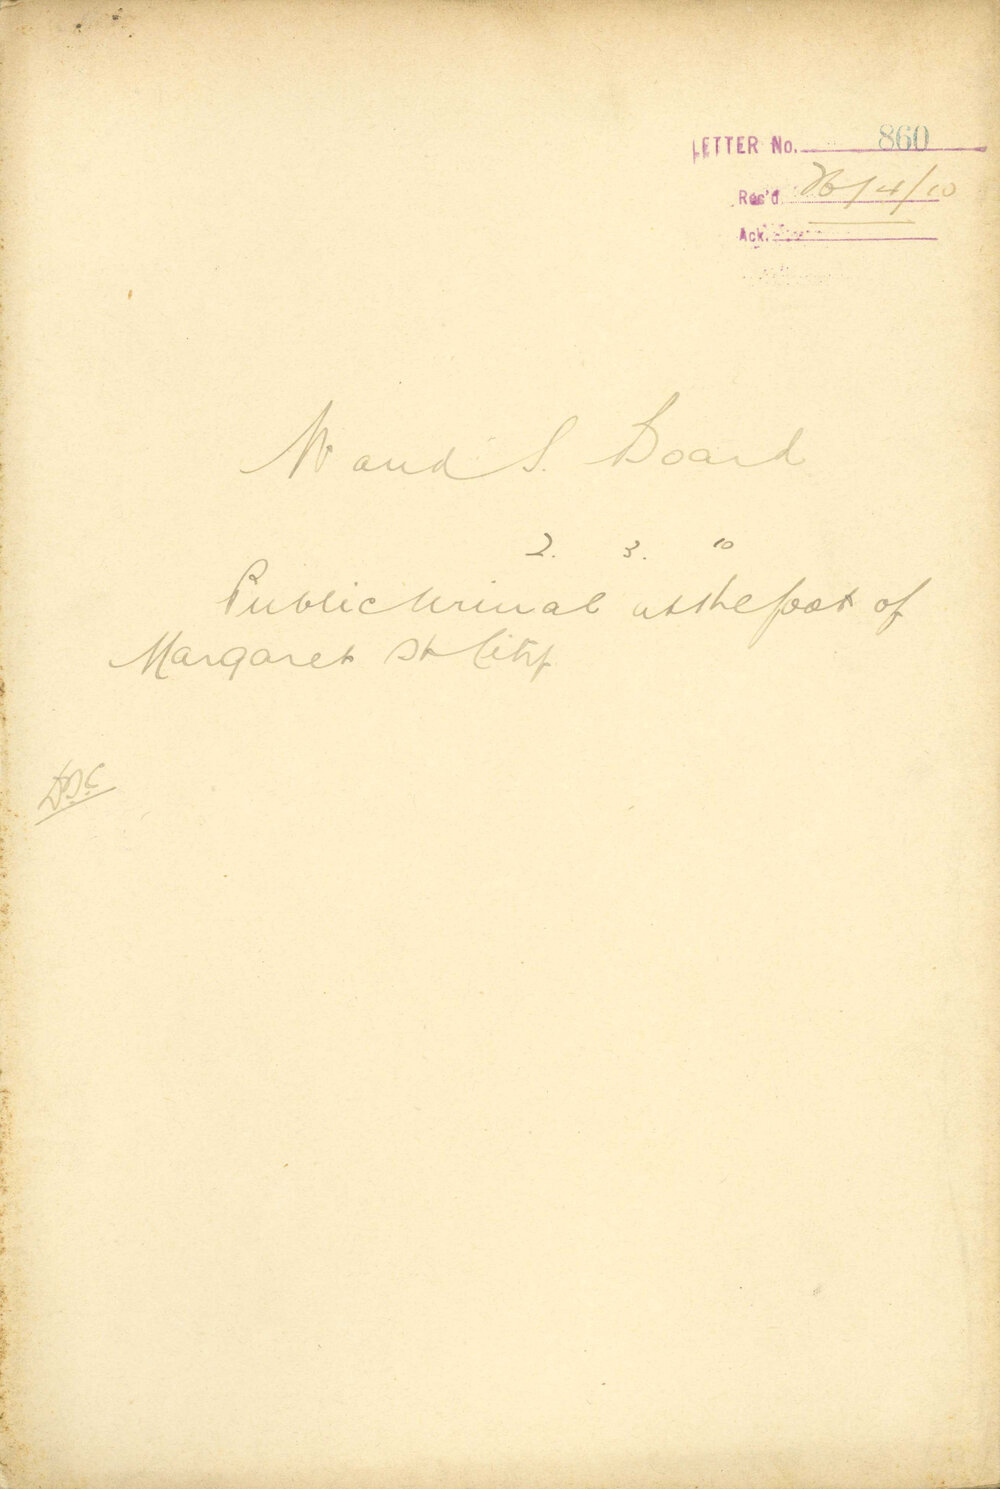 LETTER No. 860
Rec'd. 26/4/10
Ack.
W and S. Board
2. 3. 10
Public Urinal at the foot of
Margaret St City